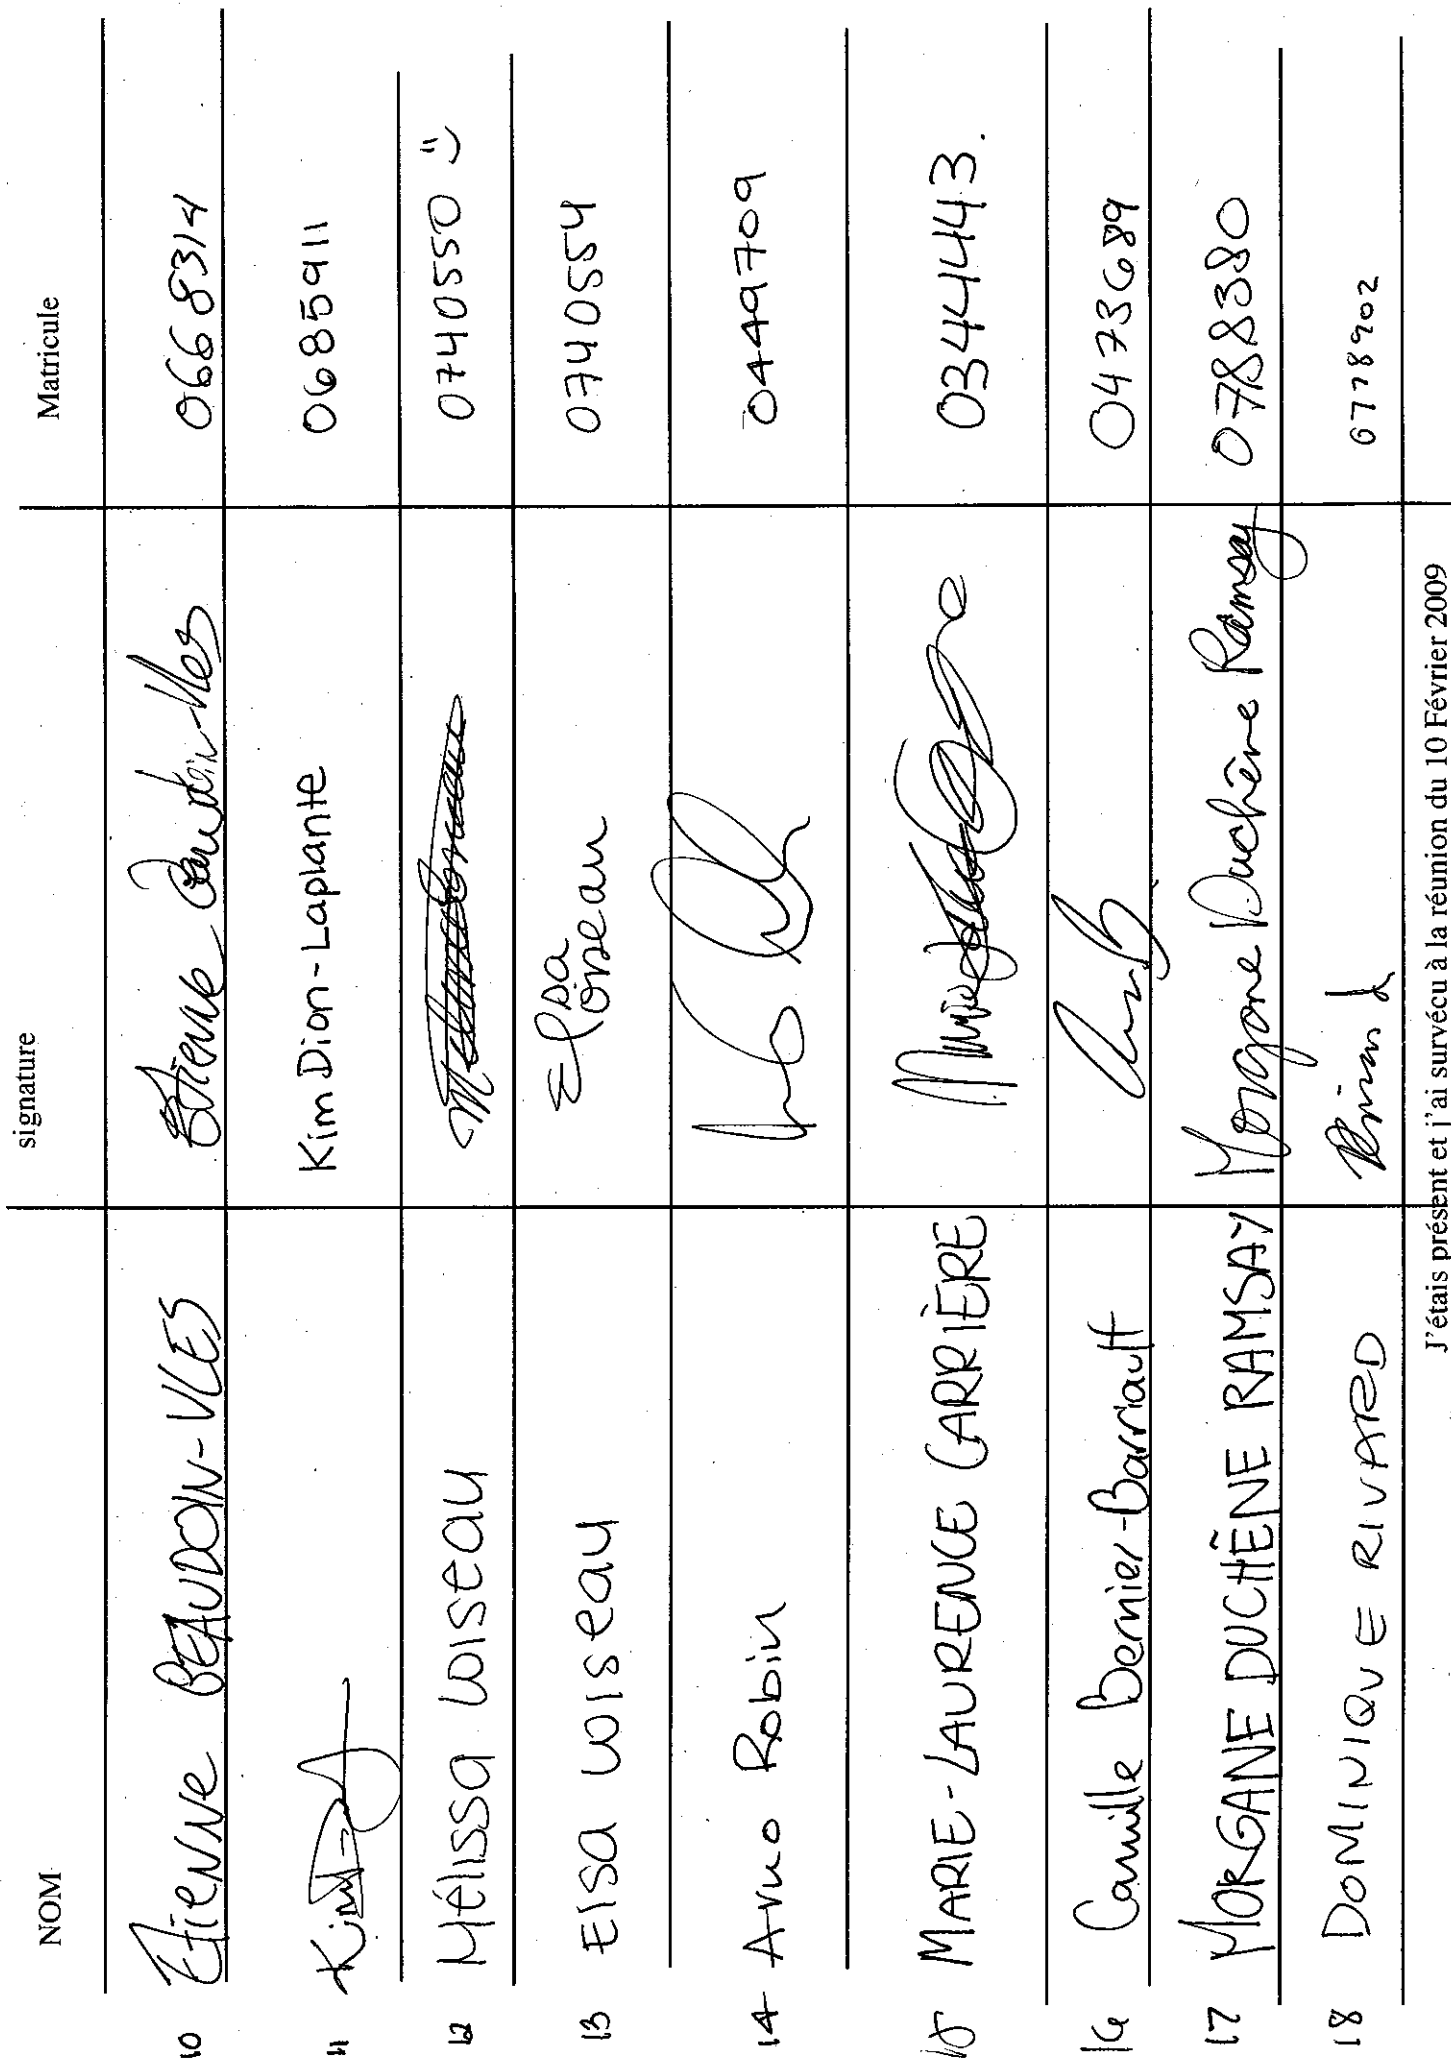 NOM signature Matricule
10 Étienne BEAUDOIN-VLES Étienne Beaudoin-Vles 0668314
11 Kim Dion-Laplante 0685911
12 Mélissa Loiseau 0740550 :)
13 Elsa Loiseau Elsa Loiseau 0740554
14 Arno Robin 0449709
15 MARIE-LAURENCE CARRIÈRE 0344443.
16 Camille Bernier-Barriault 0473689
17 MORGANE DUCHÊNE RAMSAY Morgane Duchêne Ramsay 0788380
18 DOMINIQUE RIVARD 0778902
J'étais présent et j'ai survécu à la réunion du 10 Février 2009